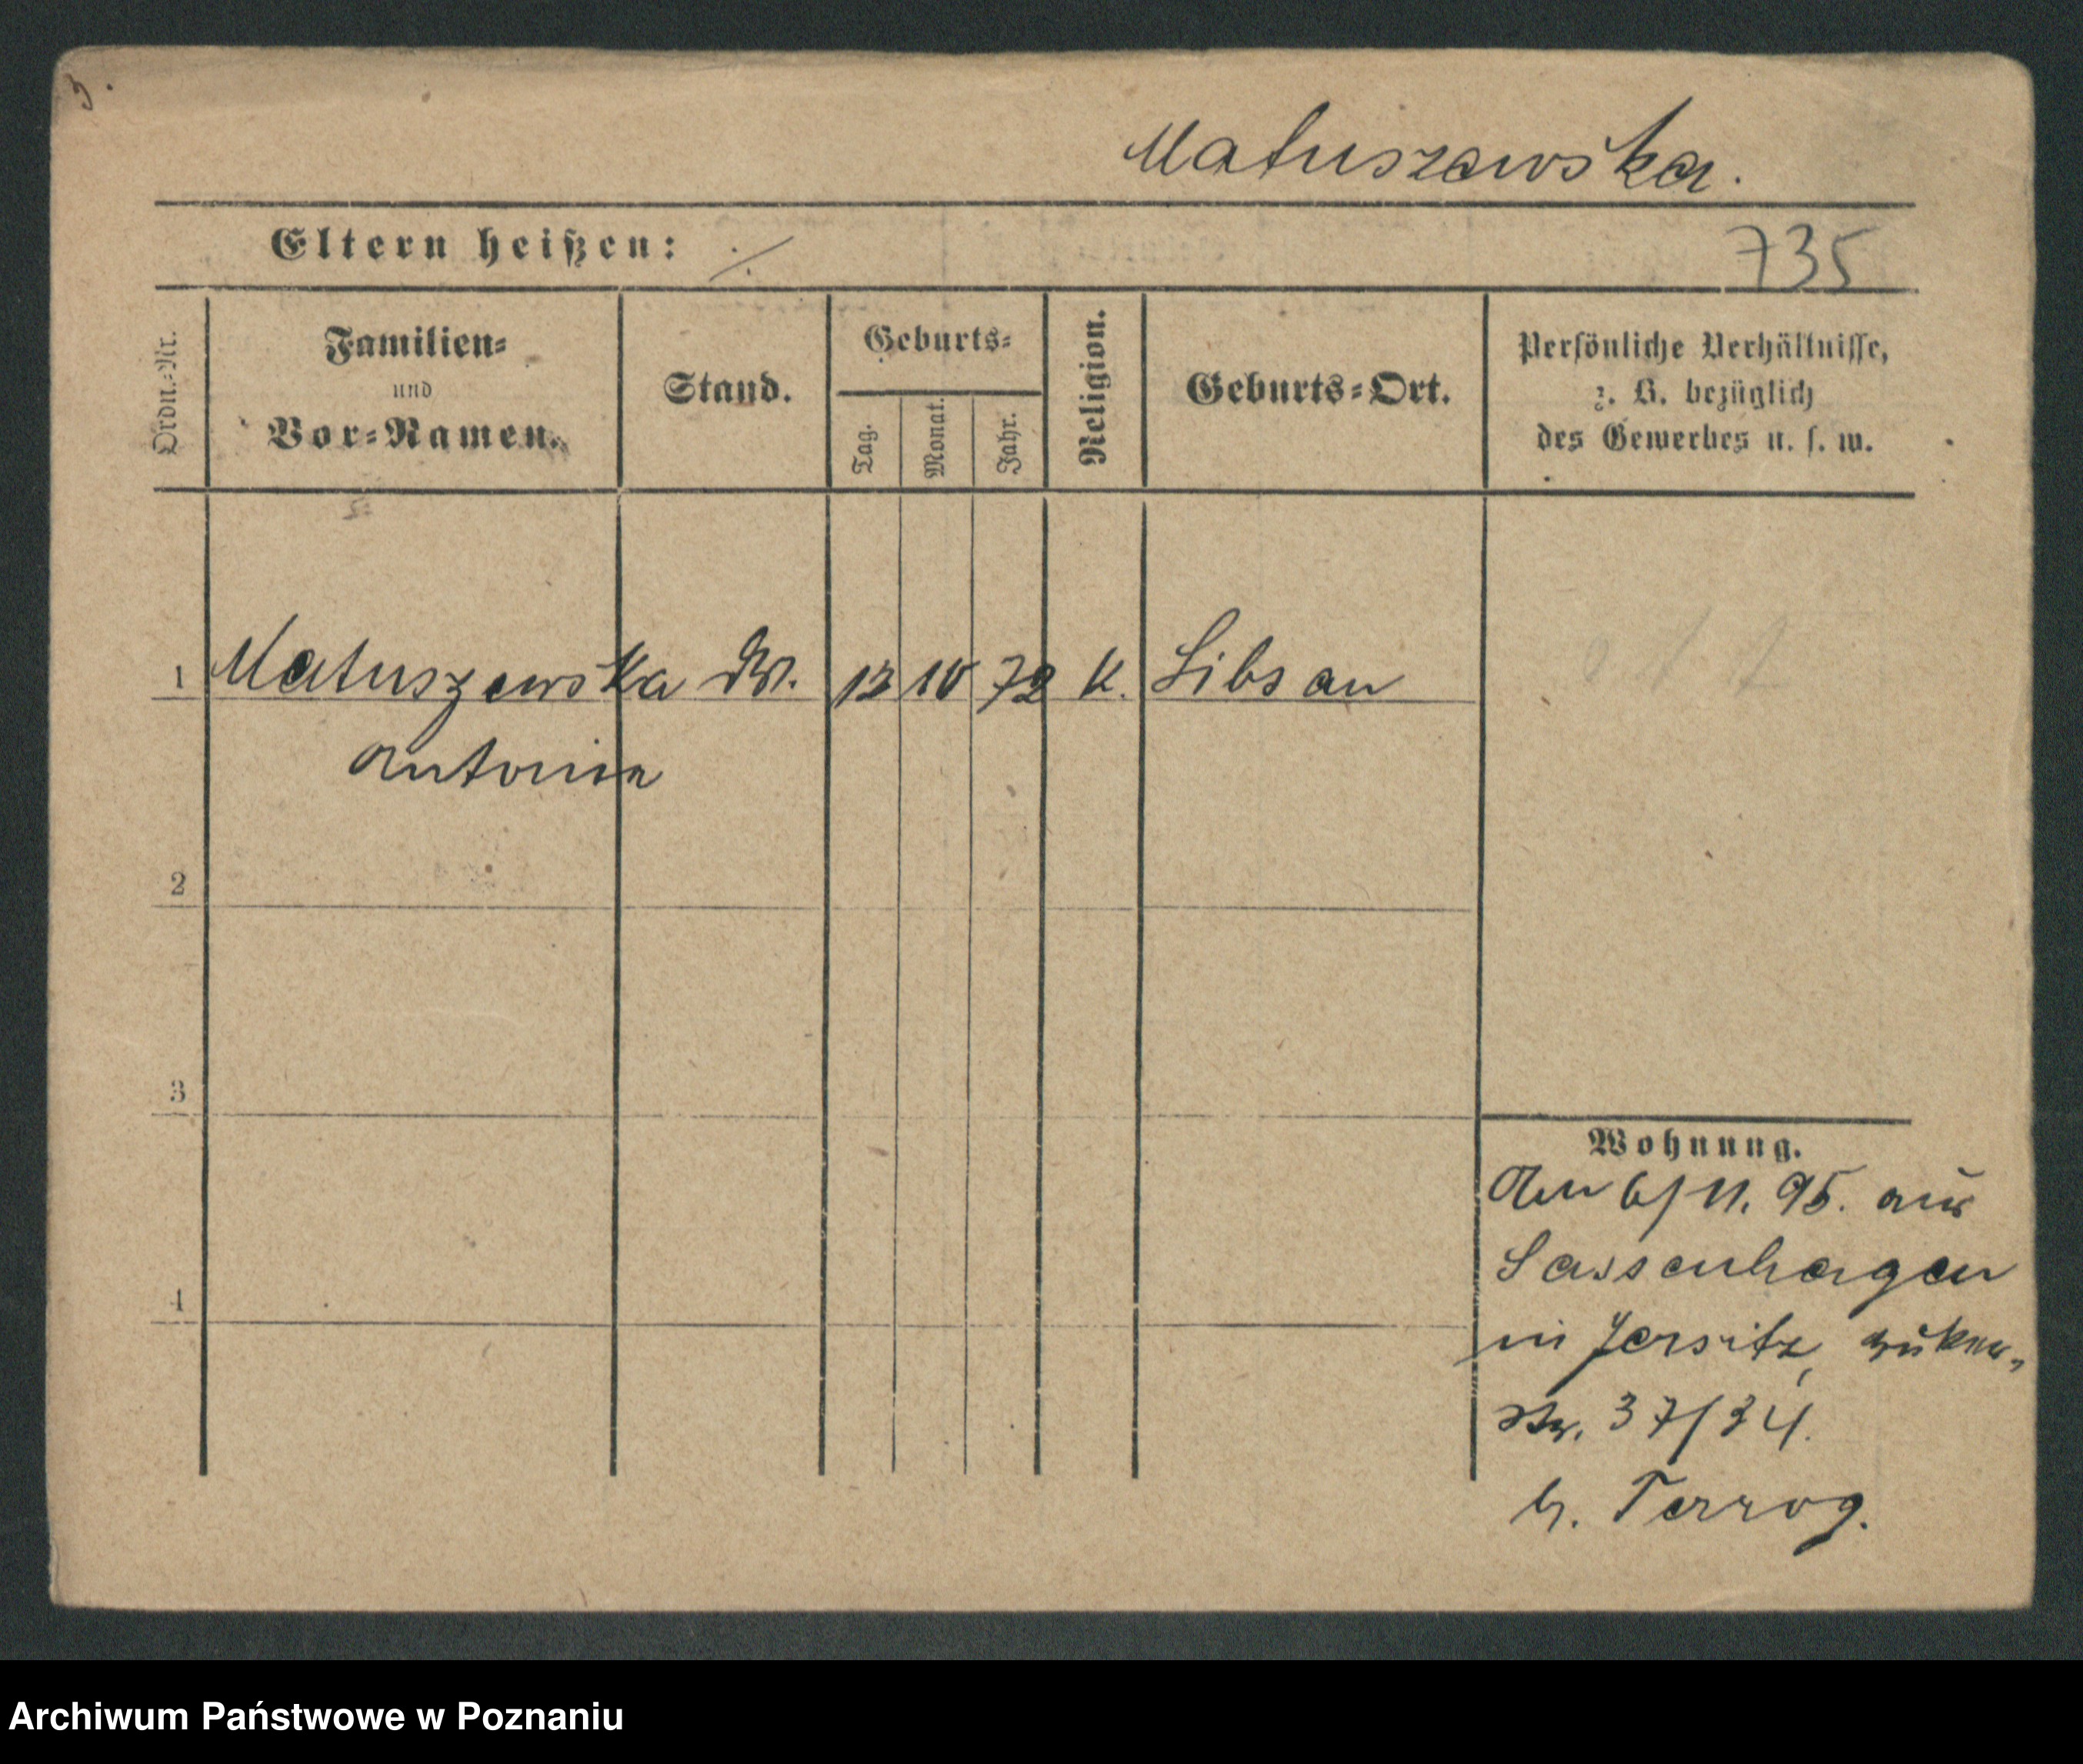 Matuszewska.
Eltern heißen: ./. 735
Ordn.-Nr.
Familien-
und
Vor-Namen.
Stand.
Geburts-
Tag.
Monat.
Jahr.
Religion.
Geburts-Ort.
Persönliche Verhältnisse,
z. B. bezüglich
des Gewerbes u. s. w.
1 Matuszewska 13 10 72 K. Libsau
Antonia
2
3
4
Wohnung.
Am 6/11. 95. aus
Sassenhagen
in Jersitz,
Str. 37/34.
b. Perzog.
Archiwum Państwowe w Poznaniu